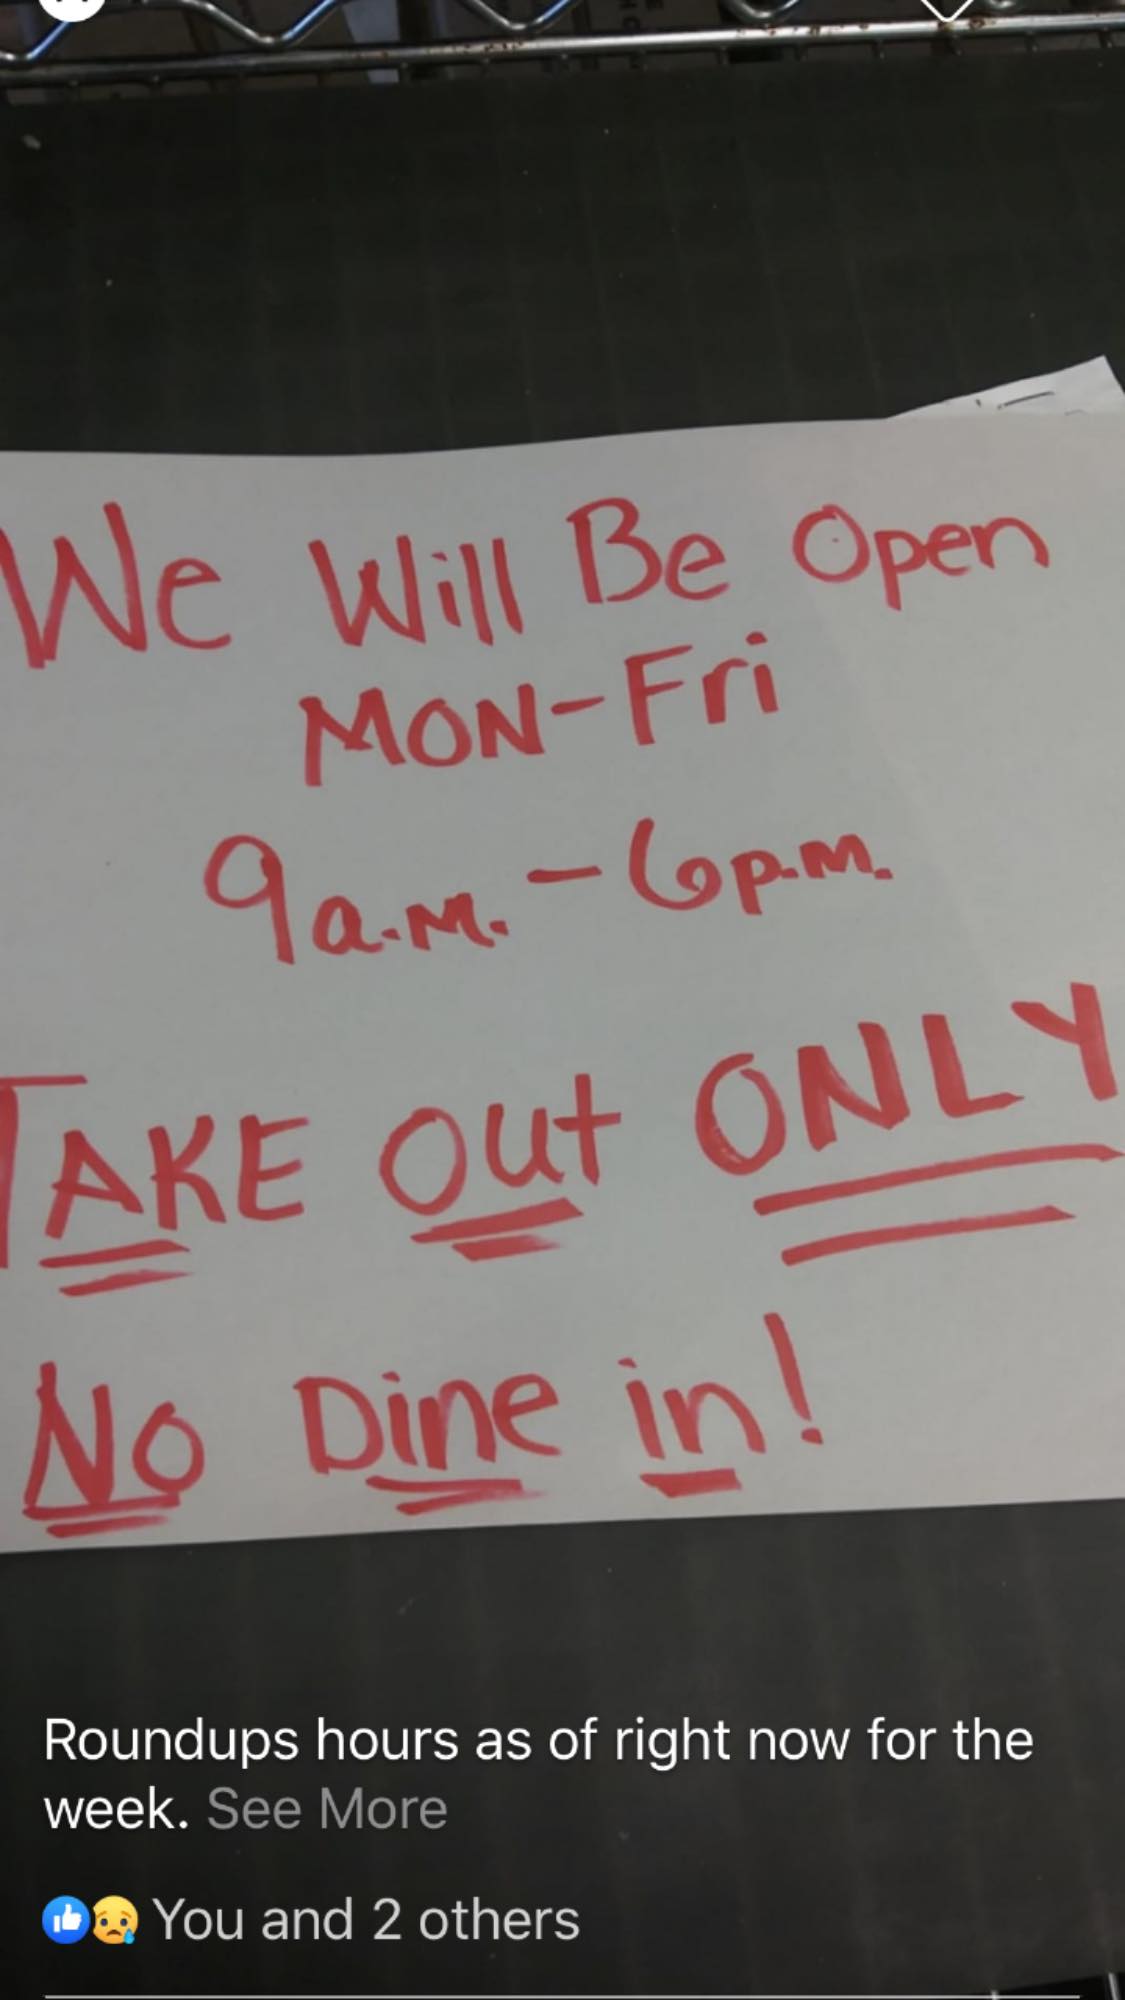 We Will Be Open
MON-Fri
9a.m.-6p.m.
TAKE Out ONLY
No Dine in!
Roundups hours as of right now for the
week. See More
You and 2 others